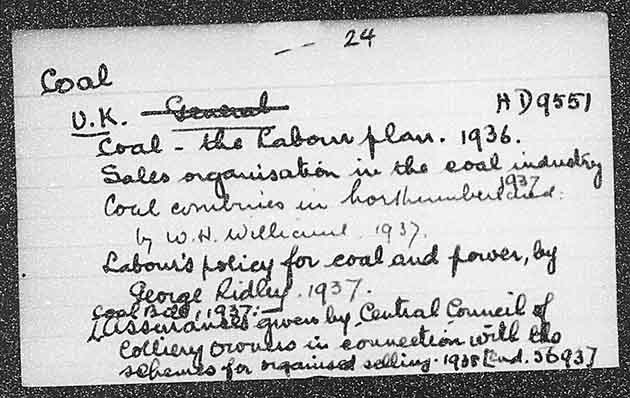 — 24
Coal
U.K. General HD9551
Coal - the Labour plan. 1936.
Sales organisation in the coal industry
1937
Coal combines in Northumberland:
by W.H. Williams. 1937.
Labour's policy for coal and power, by
George Ridley. 1937.
Coal Bill, 1937:-
Assurances given by Central Council of
Colliery Owners in connection with the
schemes for organised selling. 1938 [Cmd. 5693]